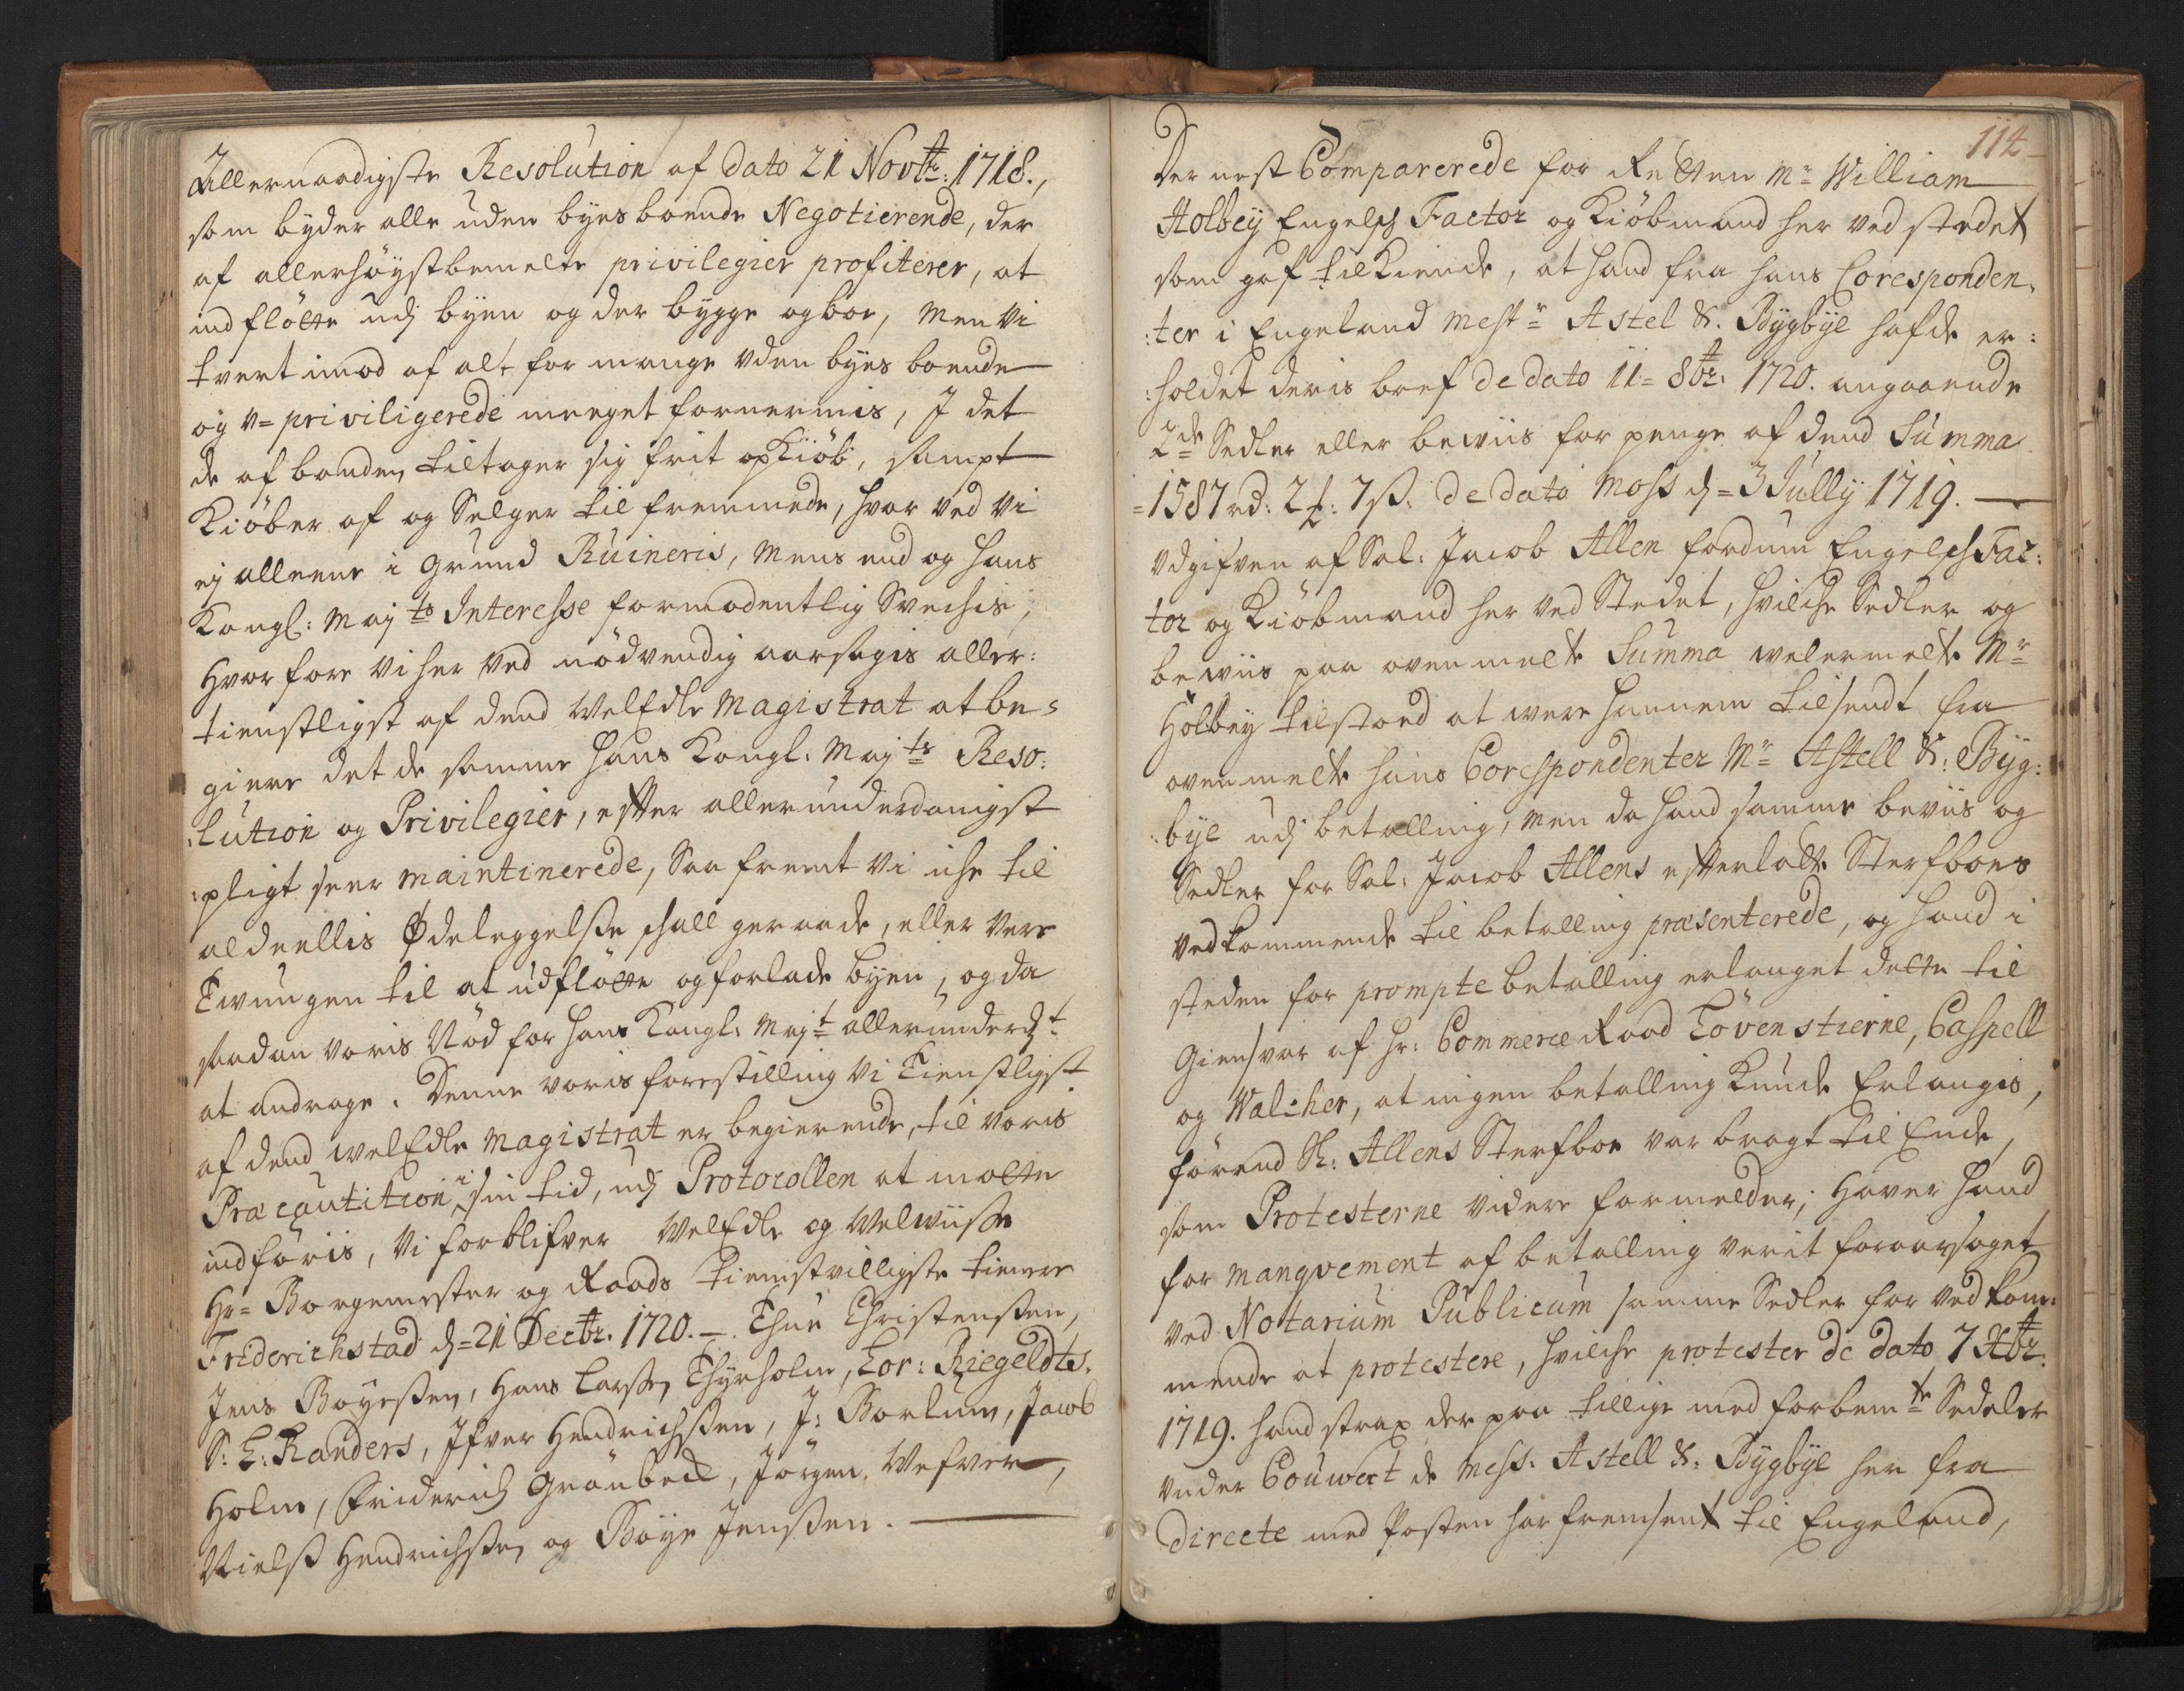 Allernaadigste Resolution af dato 21 Novbr: 1718.,
som byder alle uden byes boende Negotierende, der
af allerhøystbemelte privilegier profiterer, at
indfløtte udj byen og der bygge og boe, Men vi
tvert imod af alt for mange uden byes boende
og v=priviligerede meeget fornermis, J det
de af bonden tiltager sig frit opkiøb, sampt
Kiøber af og Selger til fremmede, hvor ved vi
ej alleene i grund Ruineris, Mens end og hans
Kongl: Majts Interesse formodentlig Svechis;
Hvorfore vi her ved nødvendig aarsagis aller:
tienstligst af dend WelEdle Magistrat at be=
giere det de samme hans Kongl: Majts Reso:
:lution og Privilegier, efter allerunderdanigst
:pligt seer maintinerede, Saa fremt vi iche til
aldeellis Ødeleggelse schall geraade, eller vere
Twungen til at udfløtte og forlade byen, og da
saadan voris Nød for hans Kongl: Majt allerunderdt
at andrage. Denne voris forestilling vi Tienstligst
af dend welEdle Magistrat er begierende, til voris
Præcautition i sin tid, udj Protocollen at motte
indføris, Vi forblifver WelEdle og Welwiise
Hr= Borgemester og Raads tienistvilligste tienere
Friderichstad d=21 Decbr. 1720.–. Thue Christensen,
Jens Bøyesen, Hans Larsen Thyrholm, Lor: Riegeldts.
S: L: Randers, Jfver Hendrichsen, J: Borlum, Jacob
Holm, Friderich Grøubeck, Jørgen Wefver,
Nielß Hendrichsen og Bøye Jensen.
114
Der nest Comparerede for Retten Mr William
Holbey Engelsch Factor og Kiøbmand her ved stedet
som gaf tilkiende, at hand fra hans Coresponden,
:ter i Engeland Messr Astel &. Bygbye hafde er:
:holdet deris bref de dato 11= 8br. 1720. angaaende
2de Sedler eller beviis for penge af dend Summa
=1587 rd: 2 : 7 ß: de dato Moss d=3 Jully 1719.
Vdgifven af Sal: Jacob Allen fordum Engelsch Fac:
tor og Kiøbmand her ved Stedet, hvilche Sedler og
beviis paa ovenmelte Summa welermelte Mr
Holbey tilstoed at were hannem tilsendt fra
ovenmelte hans Corespondenter Mr Astell &: Byg:
:bye udj betalling, Men da hand samme beviis og
Sedler for Sal: Jacob Allens efterlatte Sterfboes
vedkommende til betalling præsenterede, og hand i
steden for prompte betalling erlanget dette til
Giensvar af Hr: Commerce Raad Løvenstierne, Caspell
og Walcher, at ingen betalling kunde Erlangis,
førend Sl: Allens Sterfboe var bragt til Ende,
som Protesterne videre formelder; Haver hand
for manqvement af betalling verit foraarsaget
ved Notarium Publicum samme Sedler for vedkom:
mende at protestere, hvilche protester de dato 7 Xbr.
1719. hand strax der paa tillige med forbemte Sedeler
under Couwert de Mess. Astell &. Bygbye her fra
directe med Posten har fremsent til Engeland,